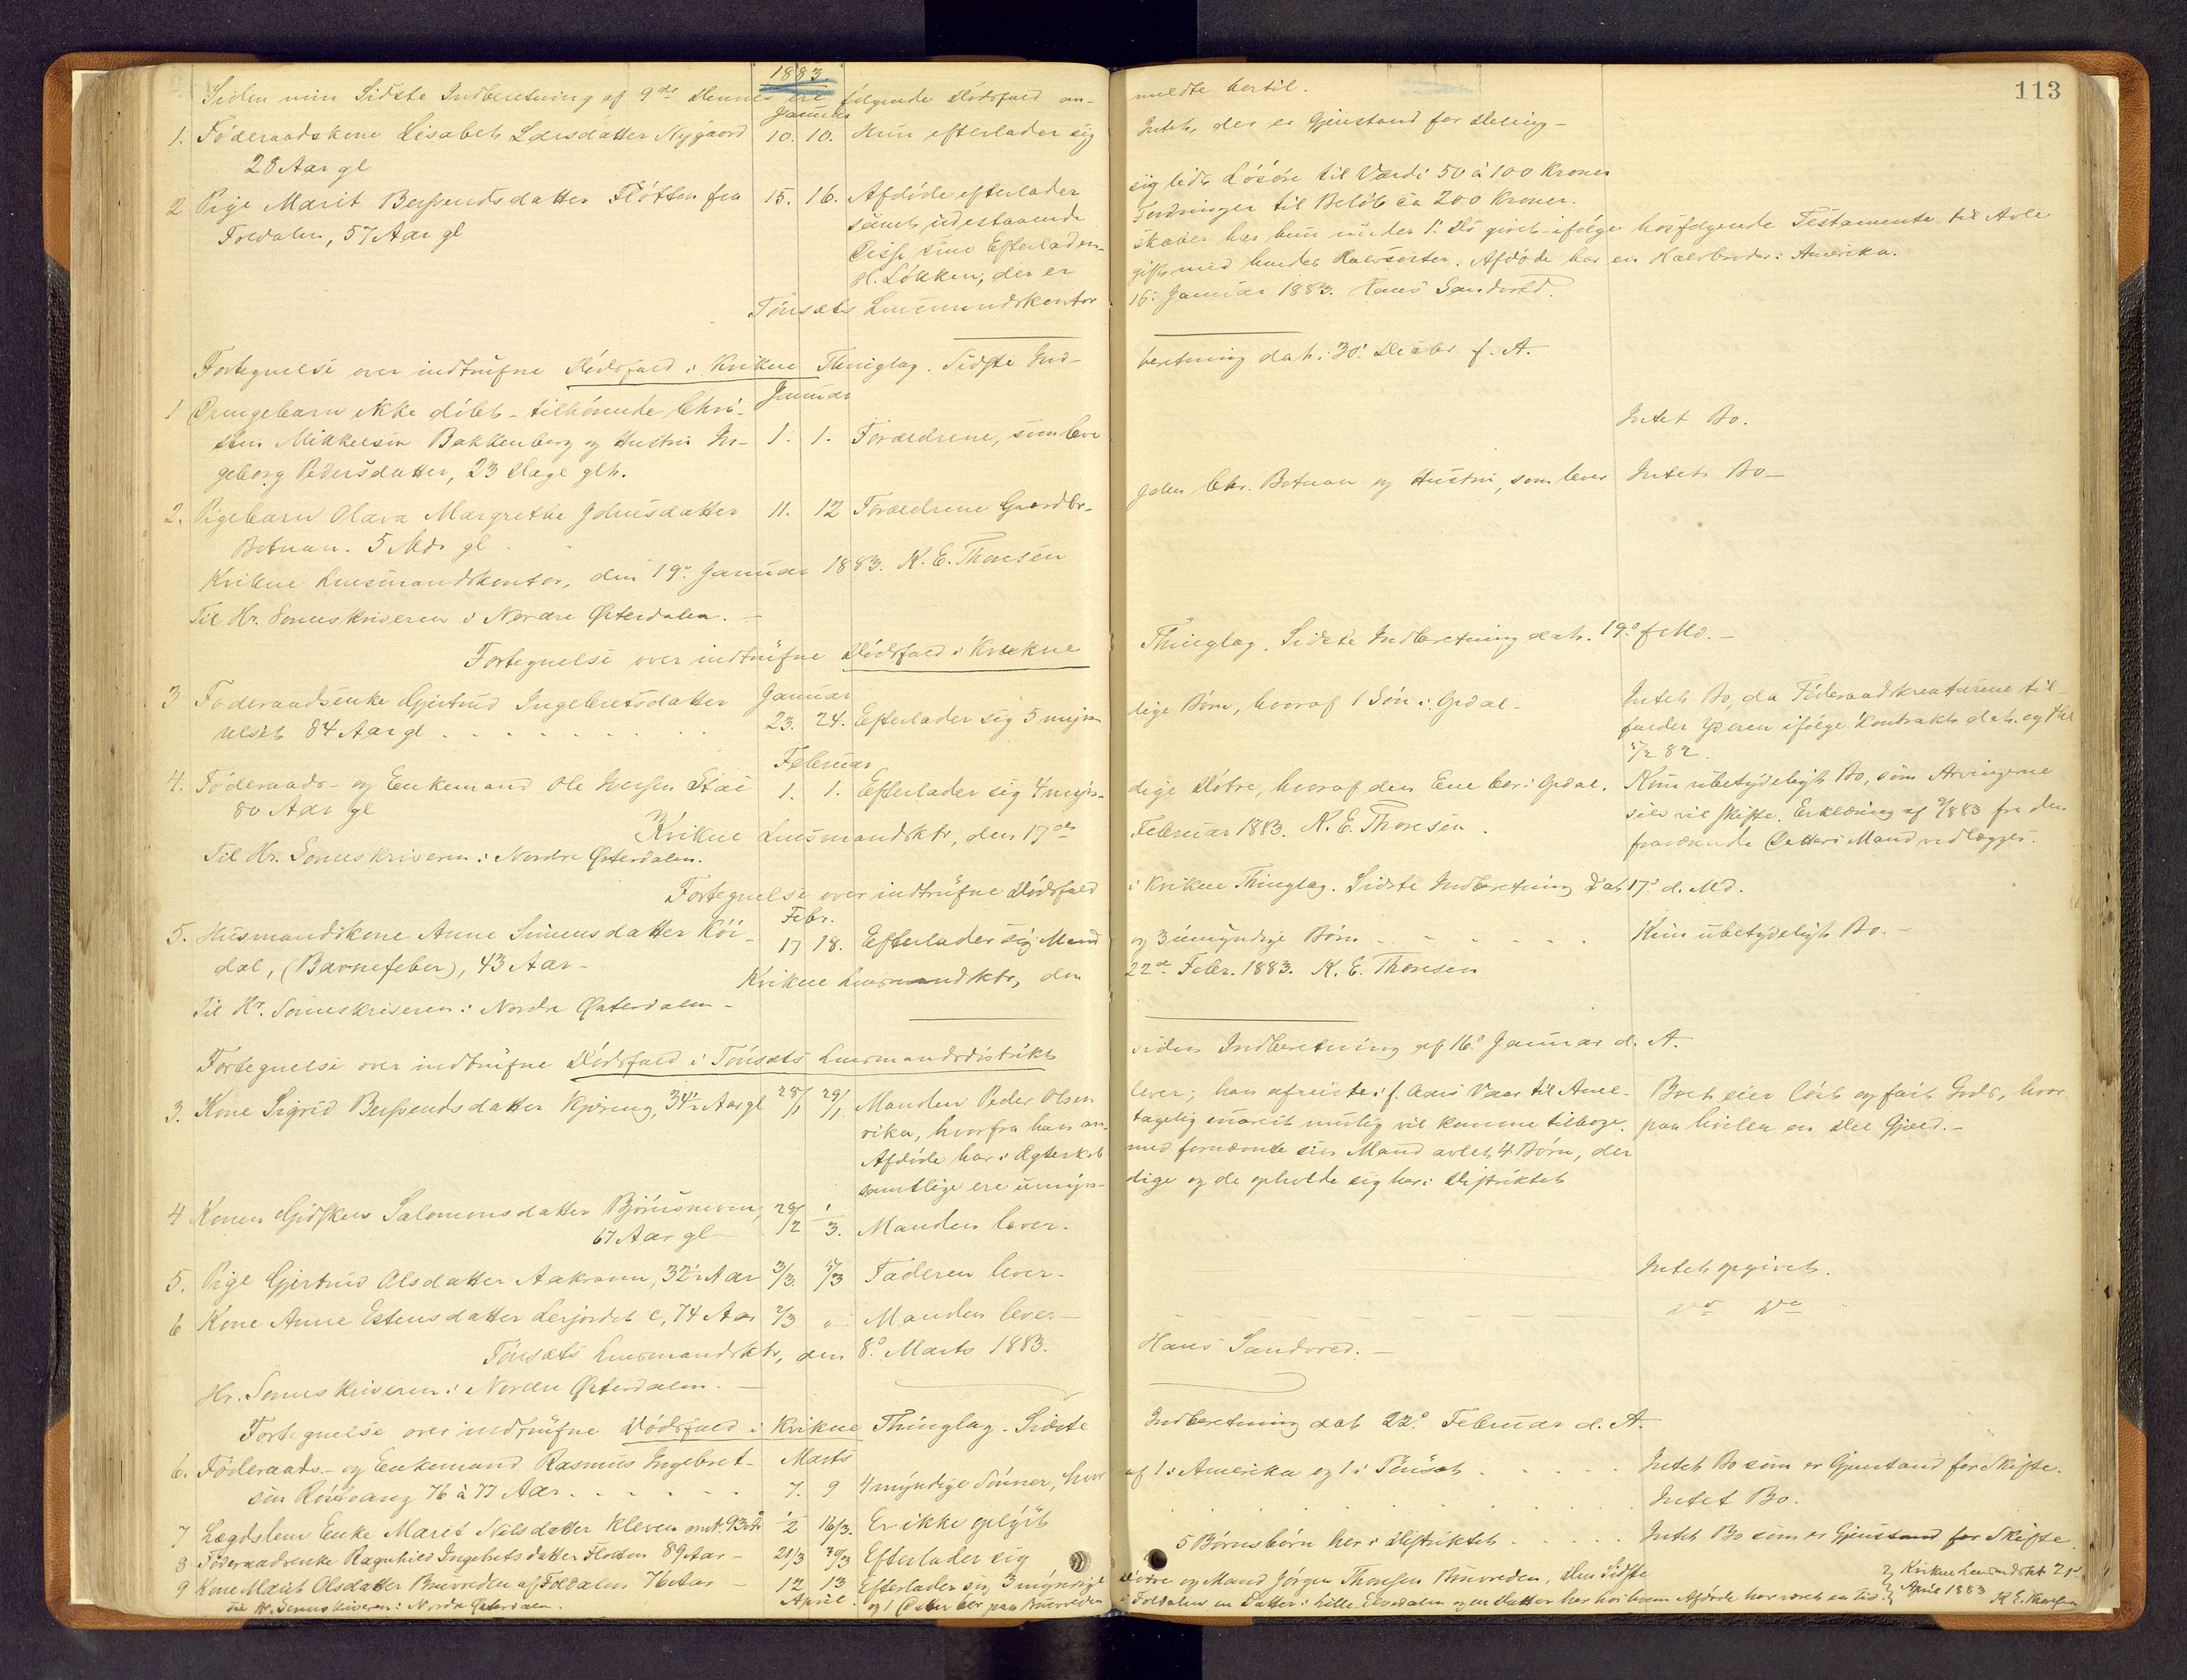 1883.
113
Siden min Sidste Indberetning af 9de dennes ere følgende Dødsfald an-
meldte hertil.
Januar
1. Føderaadskone Lisabeth Larsdatter Nygaard 10. 10. Hun efterlader sig
Intet, der er Gjenstand for Deling -
28 Aar gl
2 Pige Marit Berhendsdatter Fløtten fra 15. 16. Afdøde efterlader
sig lidt Løsøre til Værdi 50 à 100 Kroner
Foldalen, 57 Aar gl
samt udestaaende
Fordringer til Beløb ca 200 Kroner.
Disse sine Efterladen-
skaber har hun under 1' ds givet ifølge hosfølgende Testamente til Arle
H. Løkken, der er
gift med hendes Halvsøster. Afdøde har en Halvbroder i Amerika.
Tønsets Lensmandskontor
16' Januar 1883. Hans Sandvold.
Fortegnelse over indtrufne Dødsfald i Kvikne Thinglag. Sidste Ind-
beretning dat. 30' Decbr f. A.
Januar
1 Drengebarn ikke døbt - tilhørende Chri-
sten Mikkelsen Bakkenberg og Hustru In- 1. 1. Forældrene, som leve
Intet Bo.
geborg Pedersdatter, 23 Dage glt.
2. Pigebarn Olava Margrethe Johnsdatter 11. 12 Forældrene Gaardbr.
John Chr. Botnan og Hustru, som lever Intet Bo -
Botnan. 5 Mdr gl
Kvikne Lensmandskontor, den 19' Januar 1883. K. E. Thoresen
Til Hr. Sorenskriveren i Nordre Østerdalen. -
Fortegnelse over indtrufne Dødsfald i Kvikne
Thinglag. Sidste Indberetning dat. 19' f Md. -
Januar
3 Føderaadsenke Gjertrud Ingebretsdatter
ulset 84 Aar gl 23. 24. Efterlader sig 5 myn-
dige Børn, hvoraf 1 Søn i Opdal -
Intet Bo, da Føderaadskreaturene til-
falder Yderen ifølge Kontrakt dat. og thl
5/2 82
Februar
4. Føderaads- og Enkemand Ole Iversen Stai 1. 1. Efterlader sig 4 myn-
dige Døtre, hvoraf den Ene bor i Opdal.
Kun ubetydeligt Bo, som Arvingerne
80 Aar gl
selv vil skifte. Erklæring af 2/883 fra den
Kvikne Lensmandsktr, den 17de
Februar 1883. K. E. Thoresen.
fraværende Datters Mand vedlægges.
Til Hr. Sorenskriveren i Nordre Østerdalen.
Fortegnelse over indtrufne Dødsfald
i Kvikne Thinglag. Sidste Indberetning dat 17' d. Md.
Febr.
5. Husmandskone Anne Simensdatter Kói- 17 18. Efterlader sig Mand
og 3 umyndige Børn
Kun ubetydeligt Bo. -
dal, (Barnefeber), 43 Aar -
Kvikne Lensmandsktr, den
22de Febr. 1883. K. E. Thoresen
Til Hr. Sorenskriveren i Nordre Østerdalen -
Fortegnelse over indtrufne Dødsfald i Tønsets Lensmandsdistrikt
siden Indberetning af 16' Januar d. A.
3. Kone Sigrid Berhendsdatter Kjøreng, 34½ Aar gl 28/1 29/1 Manden Peder Olsen
lever; han afreiste i f. Aars Vaar til Ame-
Boet eier løst og fast Gods, hvor
rika, hvorfra han an-
tagelig snarest mulig vil komme tilbage.
paa hviler en Del Gjæld. -
Afdøde har i Ægteskab
med fornævnte sin Mand avlet 4 Børn, der
samtlige ere umyn-
dige og de opholde sig her i Distriktet
4 Konen Gjidsken Salomonsdatter Bjørnsmoen, 28/2 1/3. Manden lever -
67 Aar gl
5. Pige Gjertrud Olsdatter Aakrann, 32½ Aar 3/3. 5/3 Faderen lever -
Intet opgivet.
6 Kone Anne Estensdatter Lerjordet c, 74 Aar 2/3 " Manden lever -
do do
Tønsets Lensmandsktr, den 8' Marts 1883.
Hans Sandvold. -
Hr. Sorenskriveren i Nordre Østerdalen. -
Fortegnelse over indtrufne Dødsfald i Kvikne Thinglag. Sidste
Indberetning dat 22' Februar d. A.
Marts
6. Føderaads- og Enkemand Rasmus Ingebret-
sen Róstvang 76 à 77 Aar 7. 9 4 myndige Sønner, hvor
af 1 i Amerika og 1 i Tønset
Intet Bo som er Gjenstand for Skifte.
7 Lægdslem Enke Marit Nilsdatter Kleven omt. 93 Aar 1/2 16/3. Er ikke oplyst
Intet Bo.
8 Føderaadsenke Ragnhild Ingebretsdatter Flotten 89 Aar - 21/3 30/3 Efterlader sig
5 Børnsbørn her i Distriktet
Intet Bo som er Gjenstand for Skifte.
9 Kone Marit Olsdatter Bruvreden af Foldalen 76 Aar - 12 13 Efterlader sig 3 myndige
Døtre og Mand Jørgen Thoresen Bruvreden, Den Sidste
Kvikne Lensmandsktr 21'
Til Hr. Sorenskriveren i Nordre Østerdalen.
April. og 1 Datter bor paa Bruvreden
i Foldalen en Datter i Lille Elvedalen og en Datter her hos hvem Afdøde har været en Tid.
April 1883 K E. Thoresen